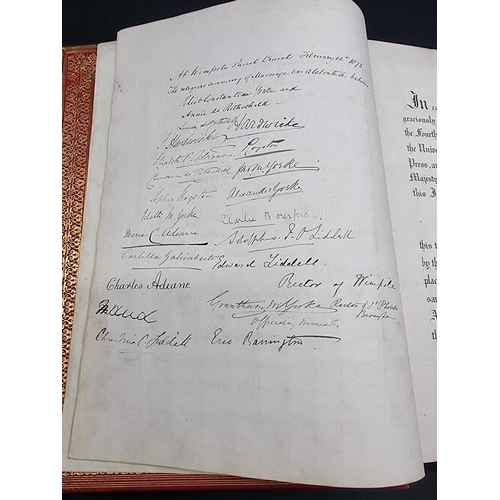 At Wimpole Parish Church February 12th 1873
The religious ceremony of Marriage was celebrated between
Eliot Constantine Yorke and
Annie de Rothschild
Hardwicke
Hardwicke
Elizabeth P. Royston
de Rothschild Jno M. Yorke
Sophie Royston Alexander Yorke
Edith M. Yorke Charlie Beresford
Marie C. Adeane Adolphus Liddell
Carlotta Edward Liddell
Charles Adeane Rector of Wimpole
Grantham M. Yorke Rector of St Philips
Officiating Minister
Christina C. Liddell Eric Barrington
In
graciously
the Fourth
the Univer
Press, an
Majesty
this I
this
by th
plac
sa
A
th